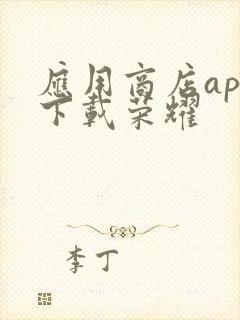 應用商店ap
下載荣耀
李丁